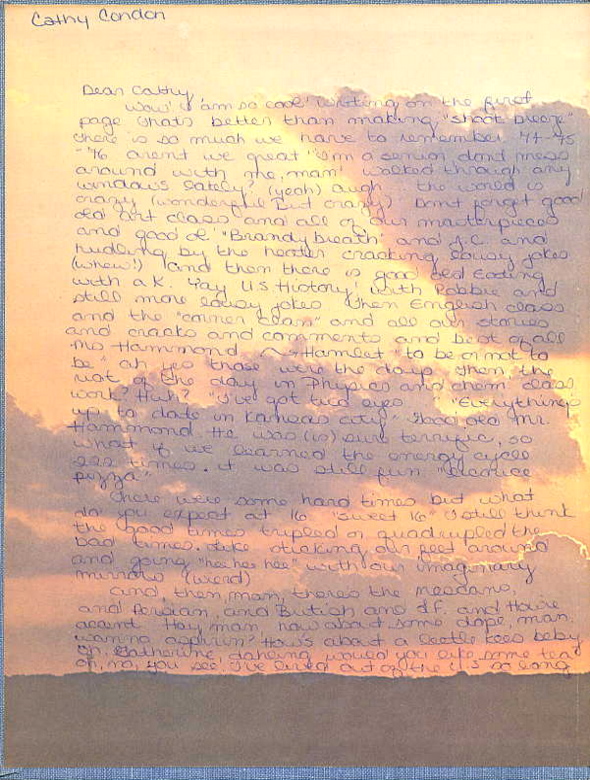 Cathy Condon
Dear Cathy,
Wow! I am so cool writing on the first
page thats better than making "shoot breeze"
there is so much we have to remember 74-75
-76 arent we great "I'm a senior dont mess
around with me, man" walked through any
windows lately? (yeah) augh the world is
crazy (wonderful But crazy) Dont forget good
old art class and all of our masterpieces
and good ol "Brandybreath" and J.C. and
hudling by the heater cracking lousy jokes
(whew!) and then there is good old Eating
with a K. Yay U.S History! with Robbie and
still more lousy jokes Then English class
and the "corner clan" and all our stories
and cracks and comments and best of all
Ms Hammond Hamlet "to be or not to
be" ah yes those were the days. Then the
rest of the day in Physics and chem class
work? Huh? "I've got two eyes" "Everythings
up to date in Kansas city" Good old Mr.
Hammond. He was (is) sure terrific, so
what if we learned the energy cycle
222 times. it was still fun
pizza"
There were some hard times but what
do you expect at 16 "sweet 16" I still think
the good times tripled or quadrupled the
bad times. Like sticking our feet around
and going "hee hee hee" with our imaginary
mirrors (weird)
and, then, man, theres the
and Persian, and British and J.F. and
accent Hay, man, how about some dope, man.
wanna aspirin? How's about a leetle kees baby
Oh, Catherine, dahling would you like some tea
oh, no, you see I've lived out of the U.S so long